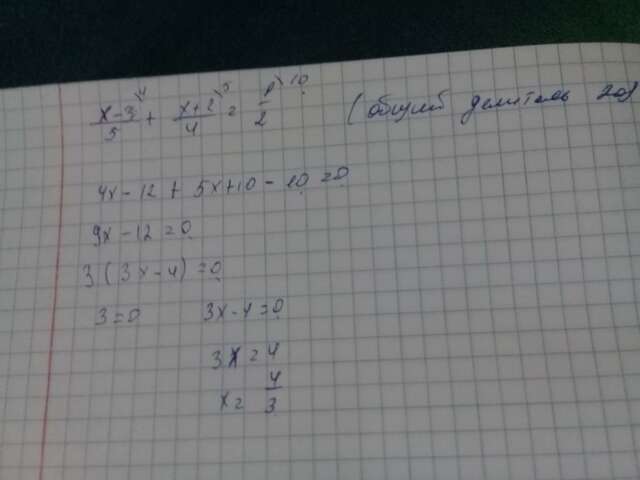 x-3\4/5 + x+2\5/4 = 1\10/2 (общий делитель 20)
4x-12+5x+10-10=0
9x-12=0
3(3x-4)=0
3=0 3x-4=0
3x=4
x=4/3